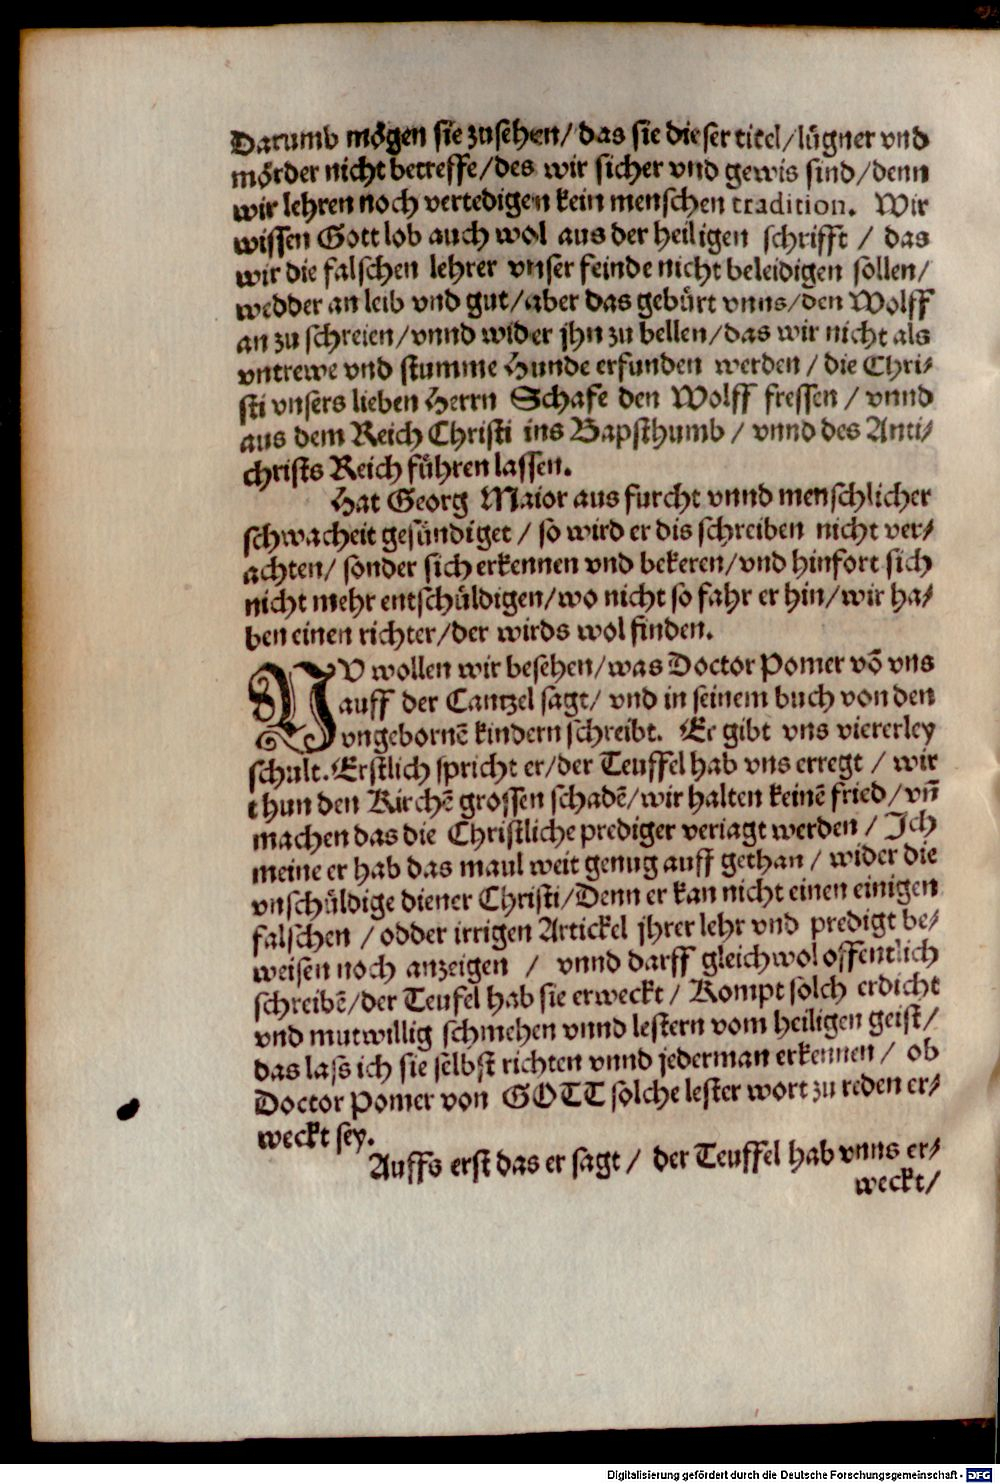 Darumb mögen sie zusehen/ das sie dieser titel/ lügner vnd
mörder nicht betreffe/ des wir sicher vnd gewis sind/ denn
wir lehren noch vertedigen kein menschen tradition. Wir
wissen Gott lob auch wol aus der heiligen schrifft / das
wir die falschen lehrer vnser feinde nicht beleidigen sollen/
wedder an leib vnd gut/ aber das gebürt vnns/ den Wolff
an zu schreien/ vnnd wider jhn zu bellen/ das wir nicht als
vntrewe vnd stumme Hunde erfunden werden / die Chri-
sti vnsers lieben Herrn Schafe den Wolff fressen / vnnd
aus dem Reich Christi ins Bapsthumb / vnnd des Anti-
christs Reich führen lassen.
Hat Georg Maior aus furcht vnnd menschlicher
schwacheit gesündiget / so wird er dis schreiben nicht ver-
achten/ sonder sich erkennen vnd bekeren/ vnd hinfort sich
nicht mehr entschüldigen/ wo nicht so fahr er hin/ wir ha-
ben einen richter/ der wirds wol finden.
NV wollen wir besehen/ was Doctor Pomer võ vns
auff der Cantzel sagt/ vnd in seinem buch von den
vngebornẽ kindern schreibt. Er gibt vns viererley
schult. Erstlich spricht er/ der Teuffel hab vns erregt / wir
thun den Kirchẽ grossen schadẽ/ wir halten keinẽ fried/ vñ
machen das die Christliche prediger veriagt werden / Ich
meine er hab das maul weit genug auff gethan / wider die
vnschüldige diener Christi/ Denn er kan nicht einen einigen
falschen / odder irrigen Artickel jhrer lehr vnd predigt be-
weisen noch anzeigen / vnnd darff gleichwol offentlich
schreibẽ/ der Teufel hab sie erweckt / Kompt solch erdicht
vnd mutwillig schmehen vnnd lestern vom heiligen geist/
das lass ich sie selbst richten vnnd jederman erkennen / ob
Doctor Pomer von GOTT solche lester wort zu reden er-
weckt sey.
Auffs erst das er sagt / der Teuffel hab vnns er-
weckt/
Digitalisierung gefördert durch die Deutsche Forschungsgemeinschaft - DFG